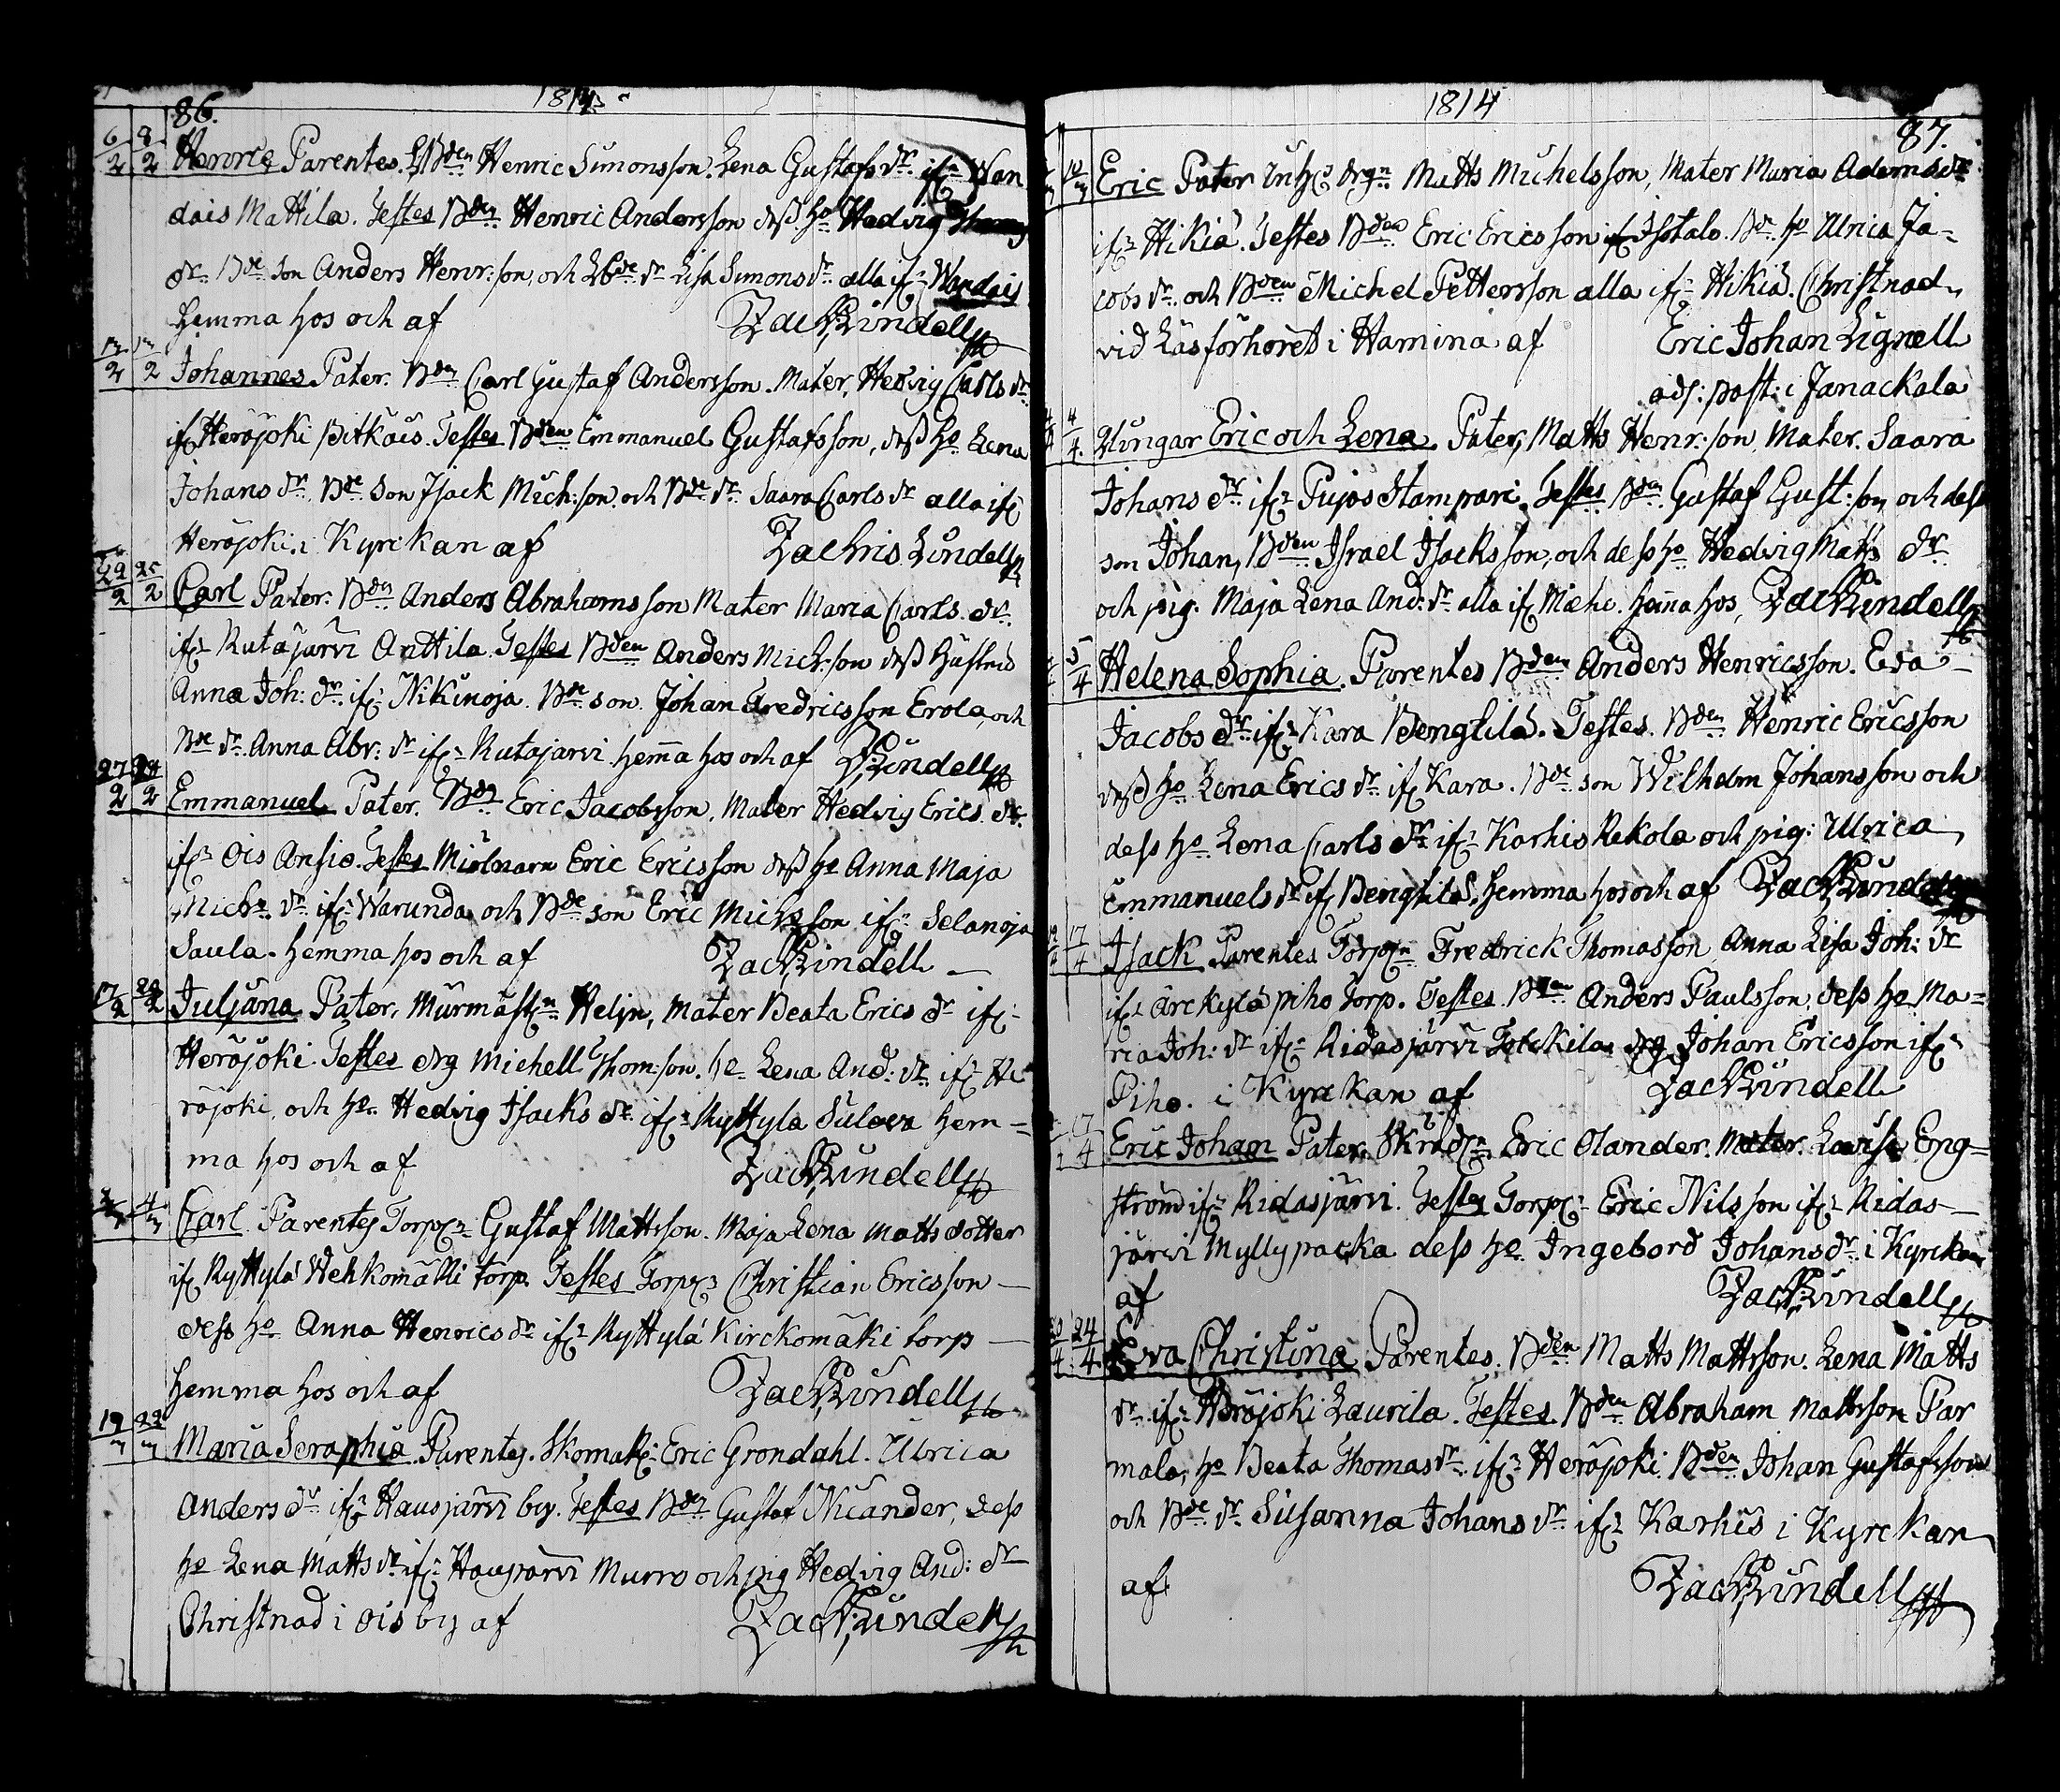 1814.
86.
6/2 8/2 Henric Parentes. Bden Henric Simonsson. Lena Gustafs dr. ifr. Wan
dais Mattila. Testes Bden Henric Andersson dess ho Hedvig
dr. Bde son Anders Henr:son, och Bde dr Lisa Simons dr. alla ifr Wandais
hemma hos och af Zach Lindell
2 2 Johannes Pater. Bdn Carl Gustaf Andersson. Mater, Hedvig Carls dr.
ifr Heräjoki Pitkäis. Testes Bden Emmanuel Gustafsson, dess ho. Lena
Johans dr. Bde Son Isack Mich:son och Bde dr Saara Carls dr alla ifr
Heräjoki. i Kyrckan af Zachris Lindell
22/2 25/2 Carl Pater. Bdn Anders Abrahamsson Mater Maria Carls. dr.
ifr Rutajärvi Anttila Testes Bden Anders Mich:son dess hustru
Anna Joh: dr. ifr. Nikinoja. Bde son Johan Fredricsson Erola, och
Bde dr. Anna Abr: dr ifr Rutajarvi hemma hos och af Z Lindell
27/2 2 Emmanuel Pater. Bdn Eric Jacobsson, Mater Hedvig Erics. dr.
ifr Ois Ansio. Testes Miölnarn Eric Ericsson dess ho Anna Maja
Mich: dr. ifr Warunda och Bde son Eric Michsson ifr Selanoja
Saula. hemma hos och af Zach Lindell
2 2 Juliana Pater, Mürmästn Heljn, Mater Beata Erics dr ifr
Heräjoki. Testes drg Michell Thom:son. ho Lena And: dr. ifr He
räjoki, och ho. Hedvig Isacks dr. ifr Ryttyla Sulova hem=
ma hos och af Zach Lindell
4 Carl Parentes Torpr Gustaf Mattsson. Maja Lena Matts dotter
ifr Ryttylä Wehkomäki torp Testes Torpr Christian Ericsson
dess ho Anna Henrics dr ifr Ryttylä Kirckomäki torp
hemma hos och af Zach Lindell
19 Maria Seraphia Parentes. Skomak: Eric Grondahl. Ulrica
Anders dr ifr Hausjärvi by. Testes Bdn Gustaf Nicander, dess
ho Lena Matts dr ifr Hausjarvi Murro och pig Hedvig And: dr
Christnad i Ois by af Zach Lindell
1814
87.
Eric Pater Drgn Matts Michelsson, Mater Maria Adams dr
ifr Hikiä. Testes Bden Eric Ericsson ifr Isotalo. Bd. ho Ulrica Ja=
cobs dr. och Bden Michel Pettersson alla ifr Hikiä. Christnad
vid Läsförhöret i Hamina af Eric Johan Lignell
adj: past: i Janackala
4/4. Ungar Eric och Lena Pater, Matts Henr:son, Mater. Saara
Johans dr ifr Pujos Stampari. Testes Bdn Gustaf Gust:son och dess
son Johan, Bden Israel Isacksson, och dess ho Hedvig Matts dr
och pig. Maja Lena And: dr alla ifr. hemma hos, Zach Lindell
5/4 Helena Sophia. Parentes Bden Anders Henricsson. Eva
Jacobs dr. ifr Kara Benghila. Testes. Bden Henric Ericsson
dess ho Lena Erics dr. ifr Kara. Bde son Wilhelm Johansson och
dess ho. Lena Carls dr ifr Karhis Rekola och pig: Ulrica
Emmanuels dr ifr Benghila. hemma hos och af Zach Lindell
17/4 Isack Parentes Torprn Fredrick Thomasson Anna Lisa Joh: dr
ifr Ärckylä piho Torp. Testes Bden Anders Paulsson, dess ho Ma=
ria Joh: dr ifr Ridasjärvi drg Johan Ericsson ifr
Piho. i Kyrckan af Zach Lindell
17/4 Eric Johan Pater. Skrädn Eric Olander. Mater. Lovisa Eng=
ström ifr Ridasjärvi. Testes Torpr: Eric Nilsson ifr Ridas=
järvi Myllypacka dess ho Ingebord Johans dr. i Kyrckan
af Zach Lindell
4 24/4. Eva Christina Parentes. Bden Matts Mattsson. Lena Matts
dr. ifr Heräjoki Laurila. Testes Bden Abraham Mattsson Par
mala, ho Beata Thomas dr. ifr Heräjoki. Bden Johan Gustafsson
och Bde dr. Susanna Johans dr. ifr Karhis i Kyrckan
af Zach Lindell